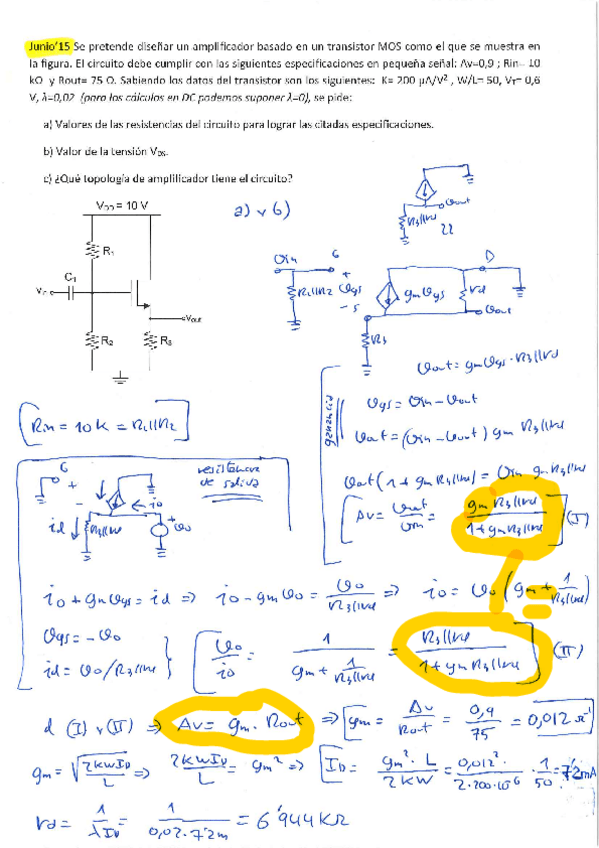 Junio'15 Se pretende diseñar un amplificador basado en un transistor MOS como el que se muestra en
la figura. El circuito debe cumplir con las siguientes especificaciones en pequeña señal: Av=0,9 ; Rin= 10
kΩ y Rout= 75 Ω. Sabiendo los datos del transistor son los siguientes: K= 200 μA/V² , W/L= 50, VT= 0,6
V, λ=0,02 (para los cálculos en DC podemos suponer λ=0), se pide:
a) Valores de las resistencias del circuito para lograr las citadas especificaciones.
b) Valor de la tensión VDS.
c) ¿Qué topología de amplilificador tiene el circuito?
VDD = 10 V
R1
C1
Vin
Vout
R2
R3
a) y b)
R3||rd
vout
vin
G
R1||R2
+
vgs
- s
gmvgs
rd
D
vout
R3
vout = gmvgs · R3||rd
ganancia
vgs = vin - vout
vout = (vin - vout) gm R3||rd
vout (1 + gm R3||rd) = vin gm R3||rd
Av = vout/vin = gm R3||rd / (1 + gm R3||rd) (I)
Rin = 10K = R1||R2
G
+
-
resistencia
de salida
id
R3||rd
io
+
vo
io + gmvgs = id => io - gmvo = vo/(R3||rd) => io = vo (gm + 1/(R3||rd))
vgs = -vo
id = vo/R3||rd
vo/io = 1/(gm + 1/(R3||rd)) = R3||rd / (1 + gm R3||rd) (II)
d (I) y (II) => Av = gm · Rout => gm = Av/Rout = 0,9/75 = 0,012 Ω⁻¹
gm = √(2KWID/L) => 2KWID/L = gm² => ID = gm² · L/(2KW) = 0,012²/(2·200·10⁻⁶) · 1/50 = 7'2mA
rd = 1/(λID) = 1/(0,02·7'2m) = 6'944KΩ